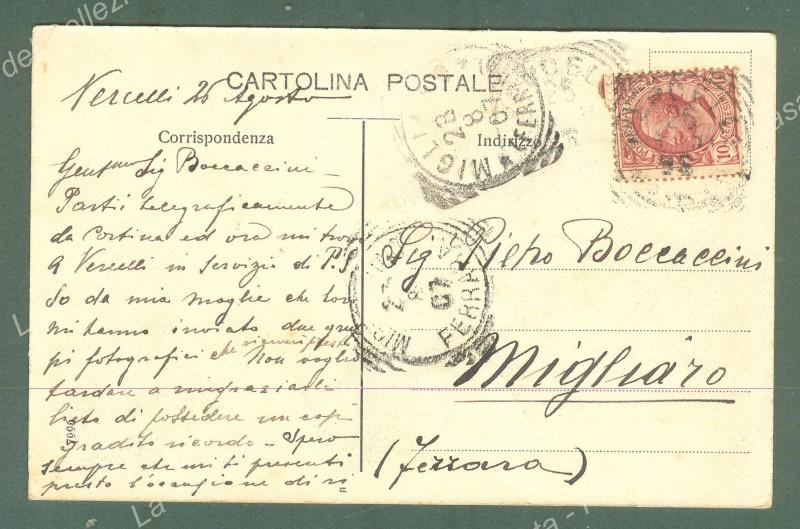 CARTOLINA POSTALE
Vercelli 26 Agosto
Corrispondenza
Indirizzo
Sig Boccaccini
Partii telegraficamente
da Cortina ed ora mi trovo
a Vercelli in servizio di P.S.
So da mia moglie che loro
mi hanno inviato due grup
pi fotografici che riceverò presto. Non voglio
tardare a ringraziarli
lieto di possedere un così
gradito ricordo - Spero
sempre che mi si presenti
presto l'occasione di ri-
Sig Pietro Boccaccini
Migliaro
(Ferrara)
FERRARA
07